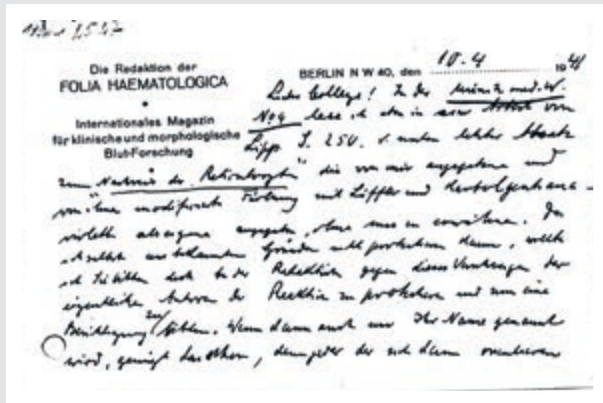 Die Redaktion der
FOLIA HAEMATOLOGICA
Internationales Magazin
für klinische und morphologische
Blut-Forschung
BERLIN NW 40, den 10.4 1941
Lieber College! In der med. W.
No 9 lese ich eben in einer Arbeit von
Lipp S. 250 unten letzter
zum Nachweis der die von mir angegebene und
von Ihnen modifizierte Färbung mit Löffler und
violett als eigene angegeben, ohne uns zu erwähnen. Da
ich selbst aus bekannten Gründen nicht protestieren kann, wollte
ich Sie bitten doch bei der Redaktion gegen dieses der
eigentlichen Autoren der Reaktion zu protestieren und um eine
Berichtigung zu bitten. Wenn dann auch nur Ihr Name genannt
wird, genügt das schon, denn jeder der sich dann orientieren